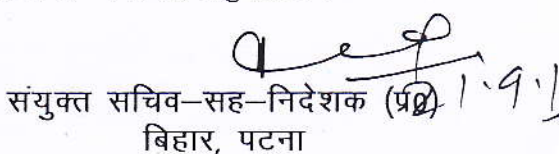 संयुक्त सचिव–सह–निदेशक (प्र०)
बिहार, पटना